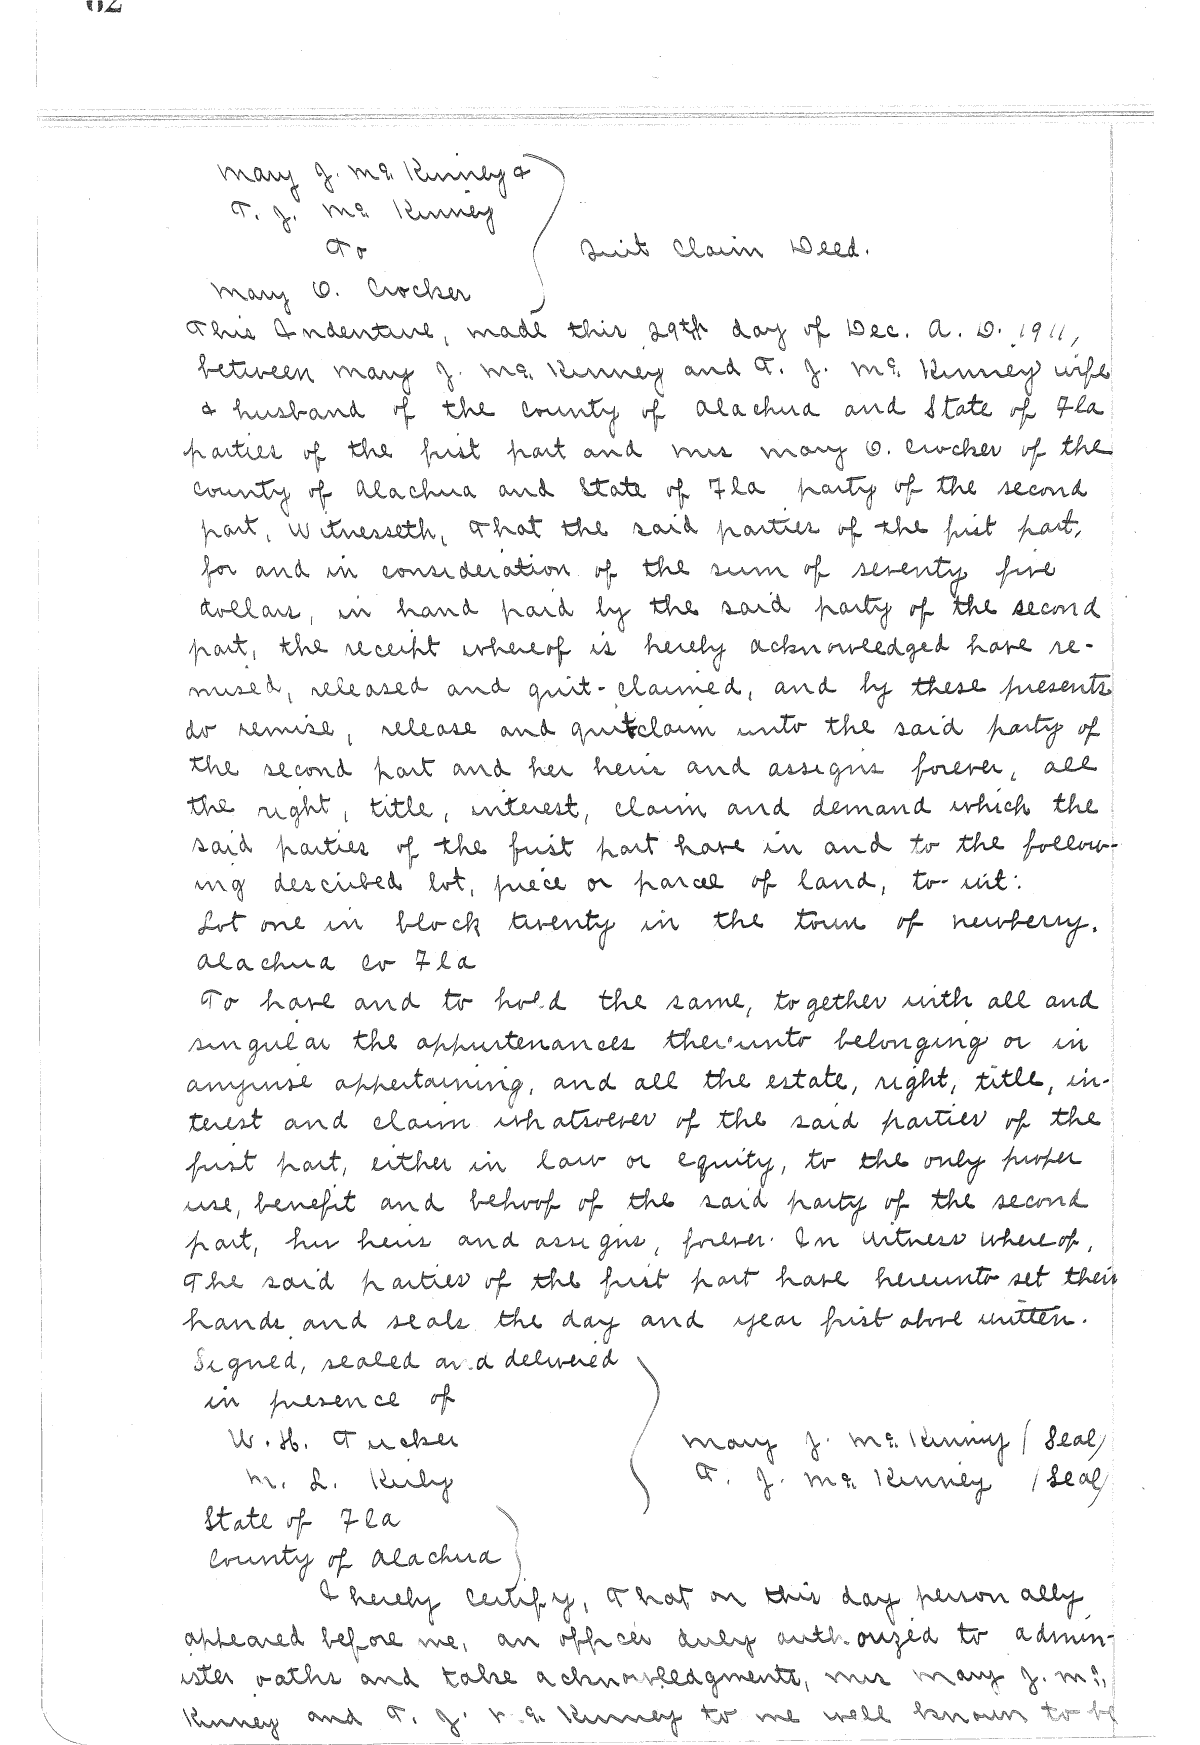 62
Mary J. McKinney &
T. J. McKinney
To
Mary O. Crocker
Quit Claim Deed.
This Indenture, made this 29th day of Dec. A. D. 1911,
between Mary J. McKinney and T. J. McKinney wife
& husband of the county of Alachua and State of Fla
parties of the first part and Mrs Mary O. Crocker of the
county of Alachua and State of Fla party of the second
part, Witnesseth, That the said parties of the first part,
for and in consideration of the sum of seventy five
dollars, in hand paid by the said party of the second
part, the receipt whereof is hereby acknowledged have re-
mised, released and quit-claimed, and by these presents
do remise, release and quitclaim unto the said party of
the second part and her heirs and assigns forever, all
the right, title, interest, claim and demand which the
said parties of the first part have in and to the follow-
ing described lot, piece or parcel of land, to-wit:
Lot one in block twenty in the town of Newberry.
Alachua Co Fla
To have and to hold the same, together with all and
singular the appurtenances thereunto belonging or in
anywise appertaining, and all the estate, right, title, in-
terest and claim whatsoever of the said parties of the
first part, either in law or equity, to the only proper
use, benefit and behoof of the said party of the second
part, her heirs and assigns, forever. In Witness whereof,
The said parties of the first part have hereunto set their
hands and seals the day and year first above written.
Signed, sealed and delivered
in presence of
W. H. Tucker
M. L. Kirby
Mary J. McKinney (Seal)
T. J. McKinney (Seal)
State of Fla
County of Alachua
I hereby Certify, That on this day personally
appeared before me, an officer duly authorized to admin-
ister oaths and take acknowledgments, Mrs Mary J. Mc
Kinney and T. J. McKinney to me well known to be